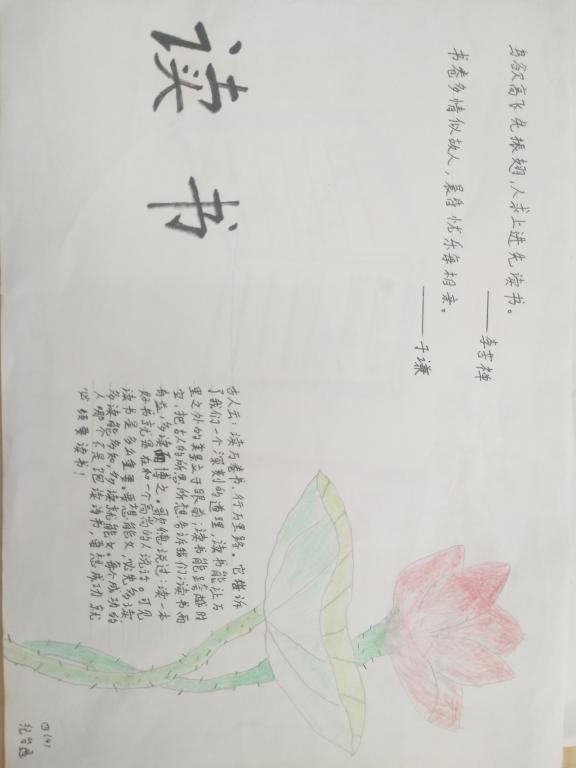 读书
鸟欲高飞先振翅，人求上进先读书。
——李苦禅
书卷多情似故人，晨昏忧乐每相亲。
——于谦
古人云：读万卷书，行万里路。它告诉
了我们一个深刻的道理，读书能让万
里之外的美景立于眼前；读书能跨越时
空，把古人的所思所想告诉我们；读书而
有益，多读而博之。歌德说过：读一本
好书就是在和一个高尚的人说话。可见
读书是多么重要。要想能文，必先多读，
多读能多知，多读就能文。每个成功的
人哪个不是饱读诗书，要想成功就
必须要读书！
四(4)